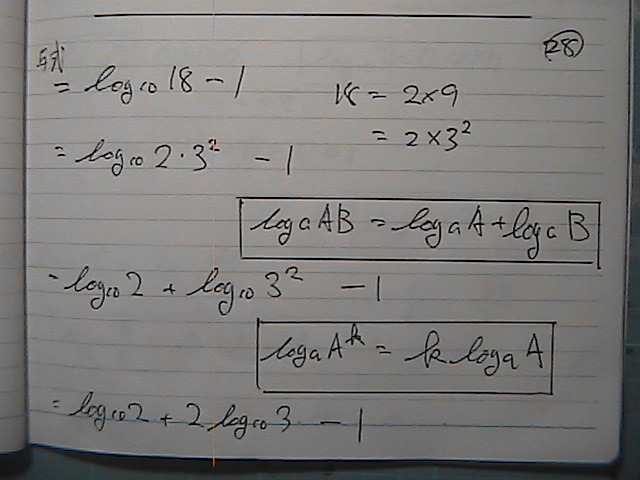 28
与式
= log₁₀ 18 − 1
18 = 2×9
= 2×3²
= log₁₀ 2・3² − 1
logₐAB = logₐA + logₐB
= log₁₀ 2 + log₁₀ 3² − 1
logₐAᵏ = k logₐA
= log₁₀ 2 + 2 log₁₀ 3 − 1